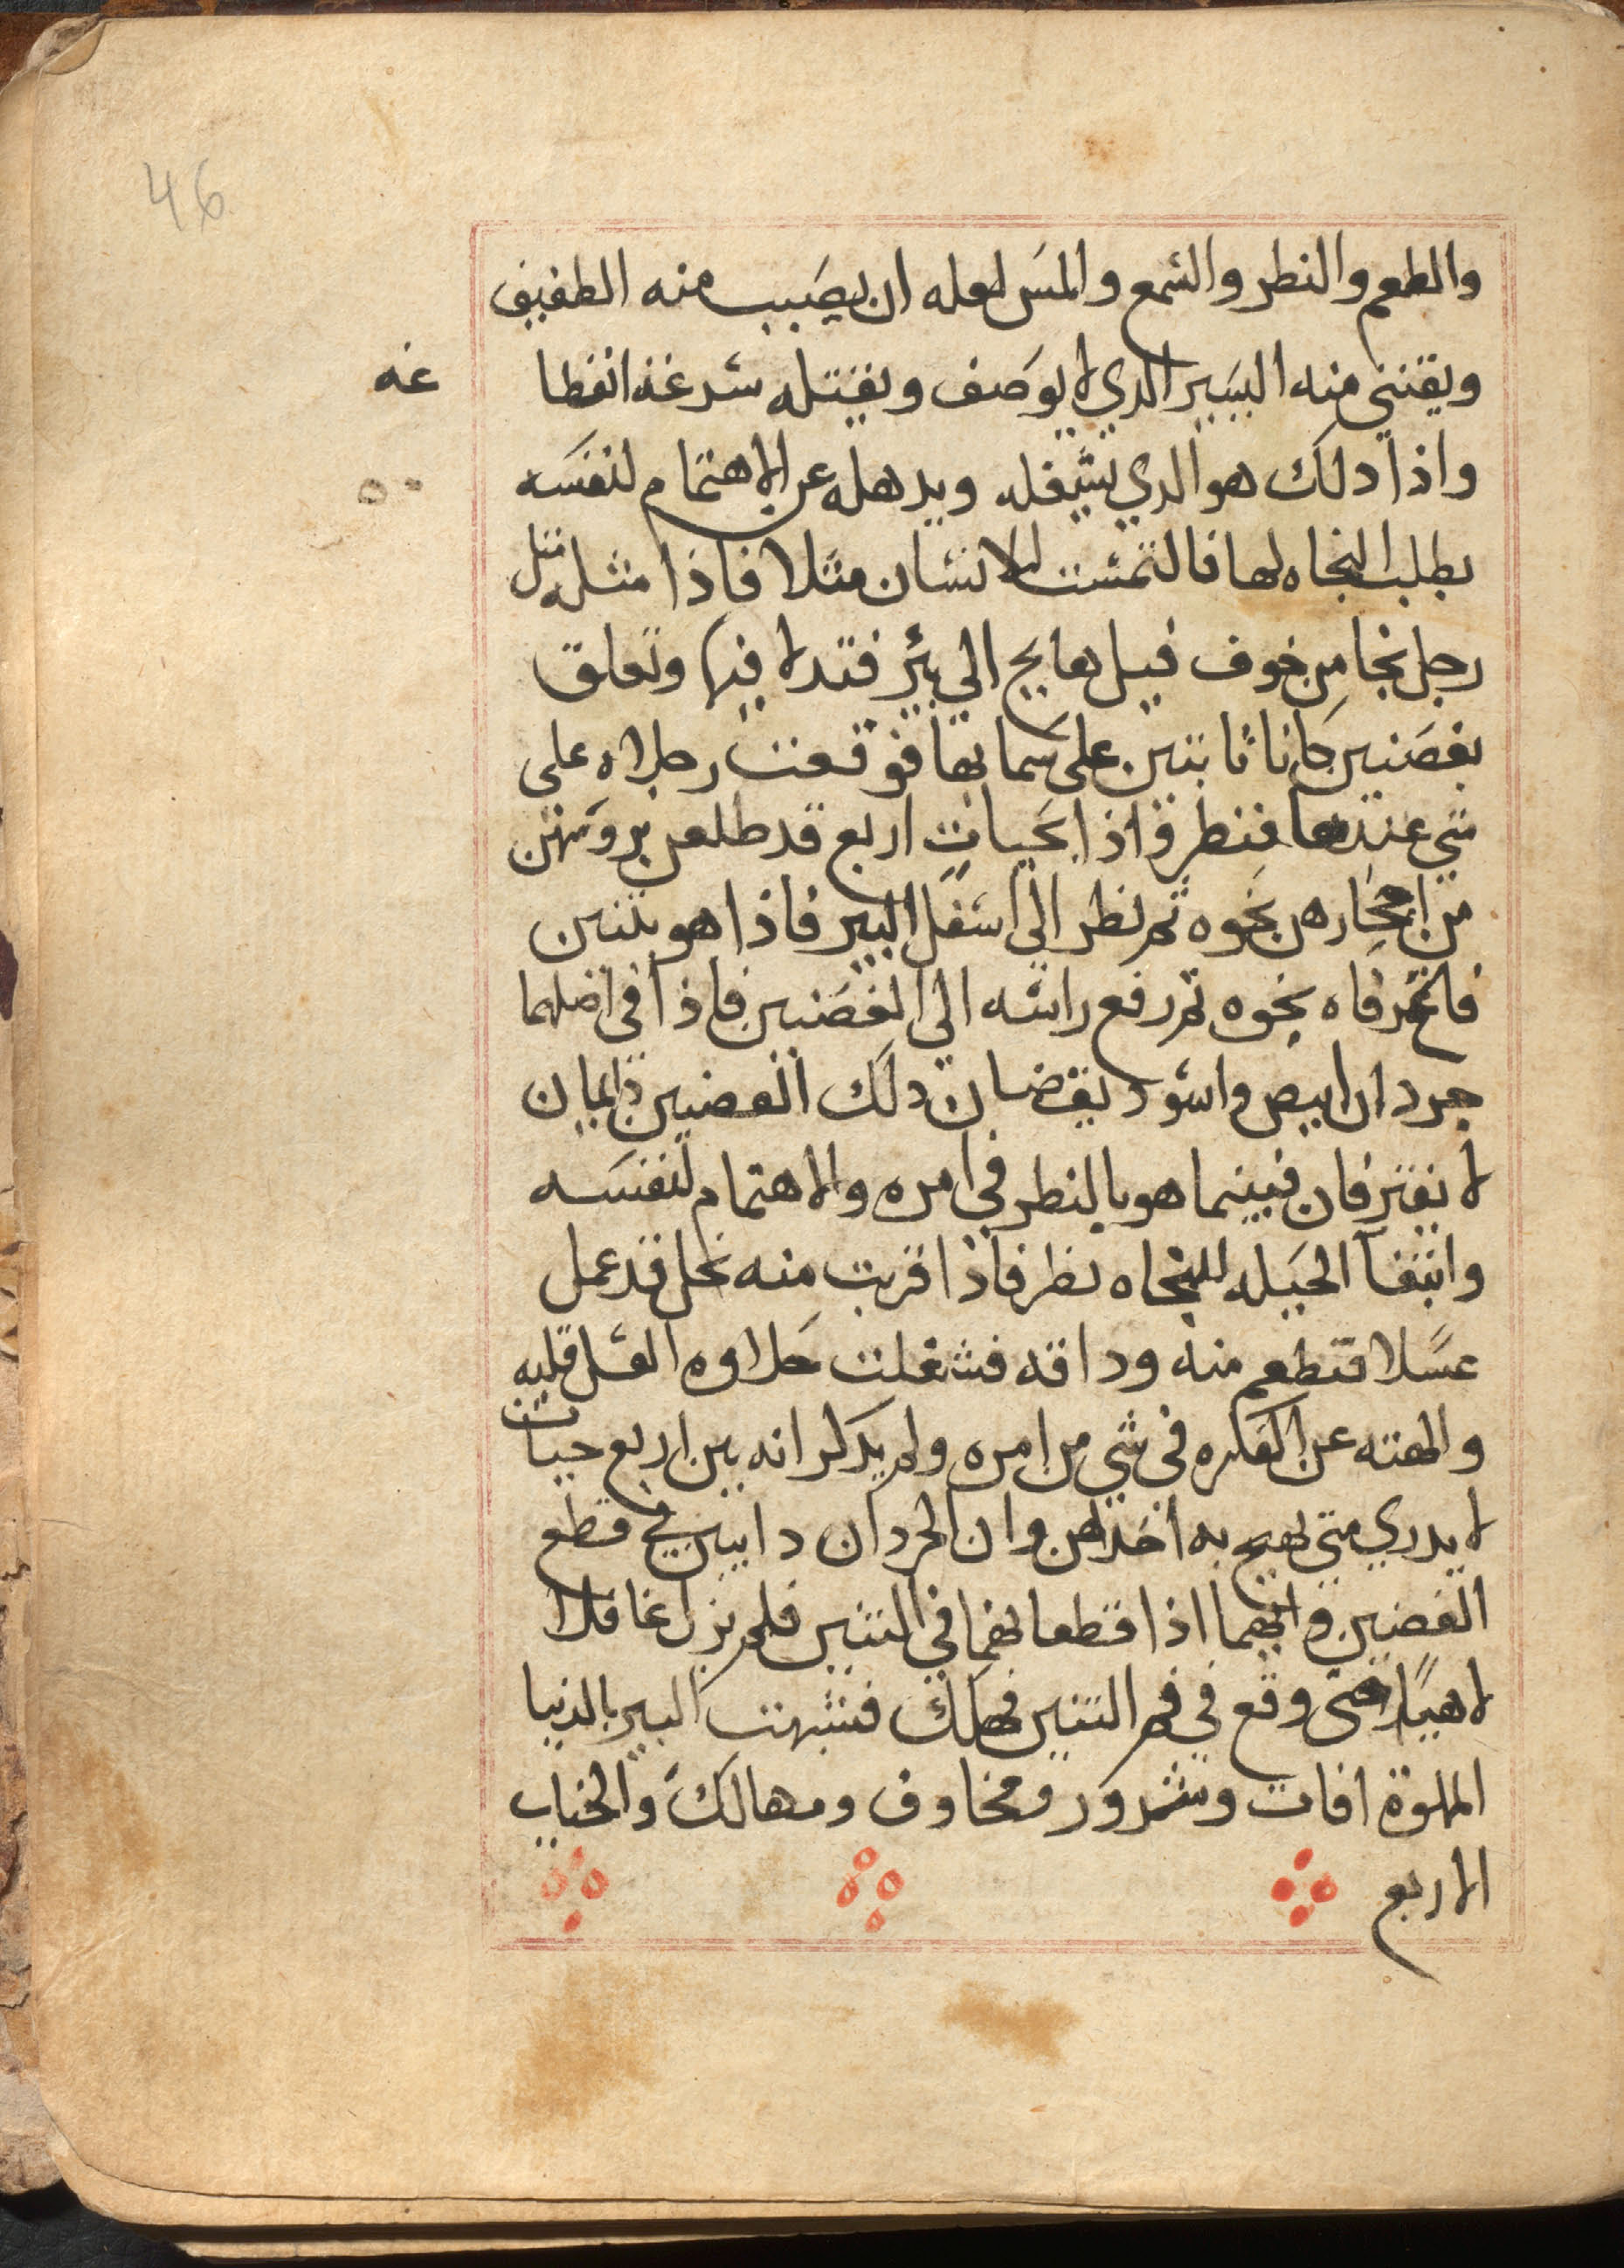 46
والطعم والنطر والشمع والمس لعله ان يصيب منه الطفيف
ويقتني منه اليسير الدي لا يوصف ويقتله شرعة انقطا
عه
واذا دلك هو الدي يشغله ويدهله عن الاهتمام لنفسه
بطلب النجاه لها فالتمست للانسان مثلا فاذا مثله مثل
رجل نجا من خوف فيل هايج الي بئر فتدلا فيها وتعلق
بغصنين كانا نابتين على سمايها فوقعت رجلاه على
شي عندها فنطر فاذا بحيات اربع قد طلعن بروسهن
من احجارهن نحوه ثم نطر الى اسفل البير فاذا هو بتنين
فاتح فاه نحوه ثم رفع راسه الى الغصنين فاذا في اصلهما
جردان ابيض واسود يقضان دلك الغصنين دايمان
لا يفتران فبينما هو بالنطر في امره والاهتمام لنفسه
وابتغآ الحيله للنجاه نطر فاذا قربت منه نحل قد عمل
عسلا فتطعم منه وداقه فشغلت حلاوه العسل قلبه
والهته عن الفكره في شي من امره ولم يدكر انه بين اربع حيات
لا يدري متى يهيج به احداهن وان الجردان دايبين في قطع
الغصنين وانهما اذا قطعا بهما في التنين فلم يزل غافلا
لاهيًا حتى وقع في فم التنين فهلك فشبهت البير بالدنيا
المملوة افات وشرور ومخاوف ومهالك والحيات
الاربع